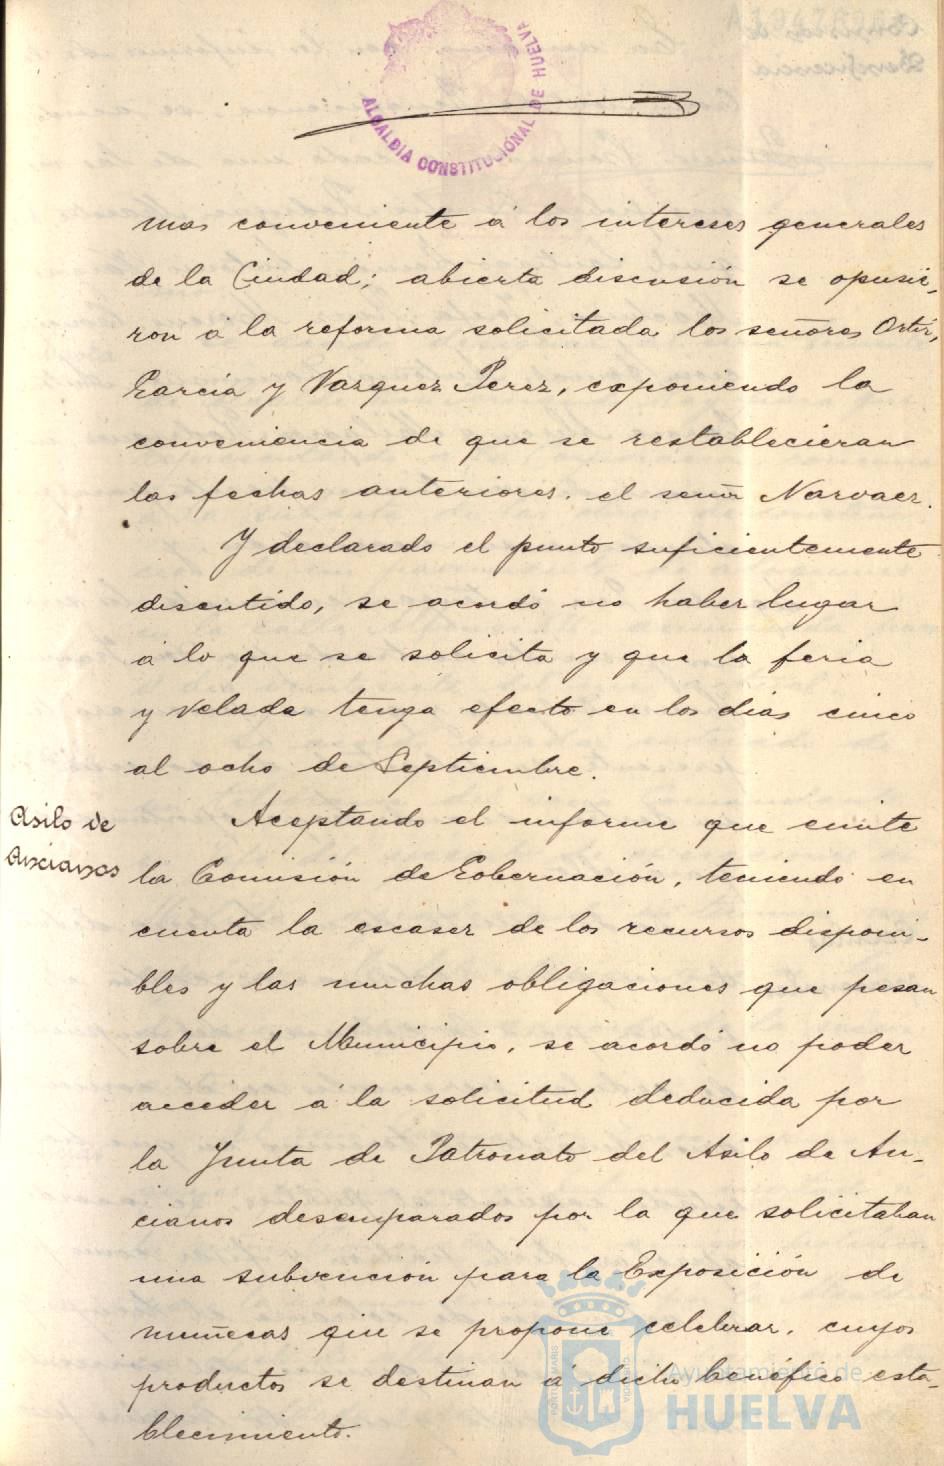 ALCALDIA CONSTITUCIONAL DE HUELVA
mas conveniente á los intereses generales
de la Ciudad; abierta discusión se opusie-
ron á la reforma solicitada los señores Ortiz,
Garcia y Vazquez Perez, exponiendo la
conveniencia de que se restablecieran
las fechas anteriores. el señor Narvaez.
Y declarado el punto suficientemente
discutido, se acordó no haber lugar
á lo que se solicita y que la feria
y velada tenga efecto en los dias cinco
al ocho de Septiembre.
Asilo de
Ancianos
Aceptando el informe que emite
la Comisión de Gobernación, teniendo en
cuenta la escasez de los recursos disponi-
bles y las muchas obligaciones que pesan
sobre el Municipio, se acordó no poder
acceder á la solicitud deducida por
la Junta de Patronato del Asilo de An-
cianos desamparados por la que solicitaban
una subvención para la Exposición de
muñecas que se propone celebrar, cuyos
productos se destinan á dicho benéfico esta-
blecimiento.
Ayuntamiento de
HUELVA